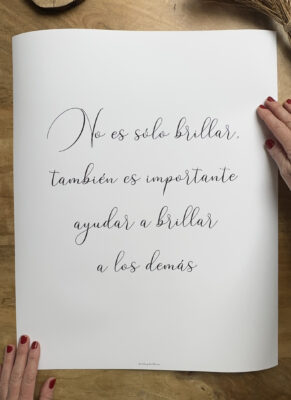 No es sólo brillar,
también es importante
ayudar a brillar
a los demás